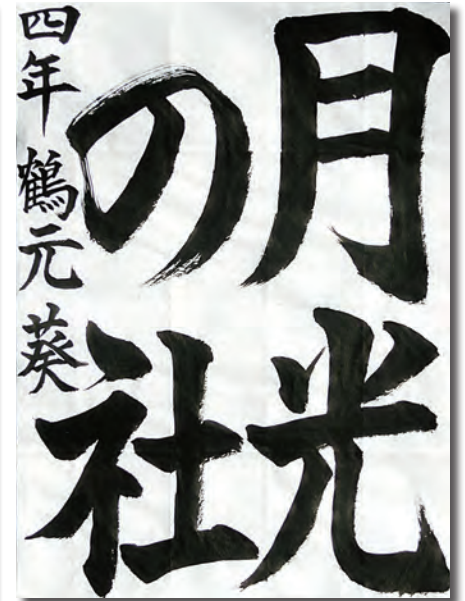 月光
の社
四年 鶴元 葵